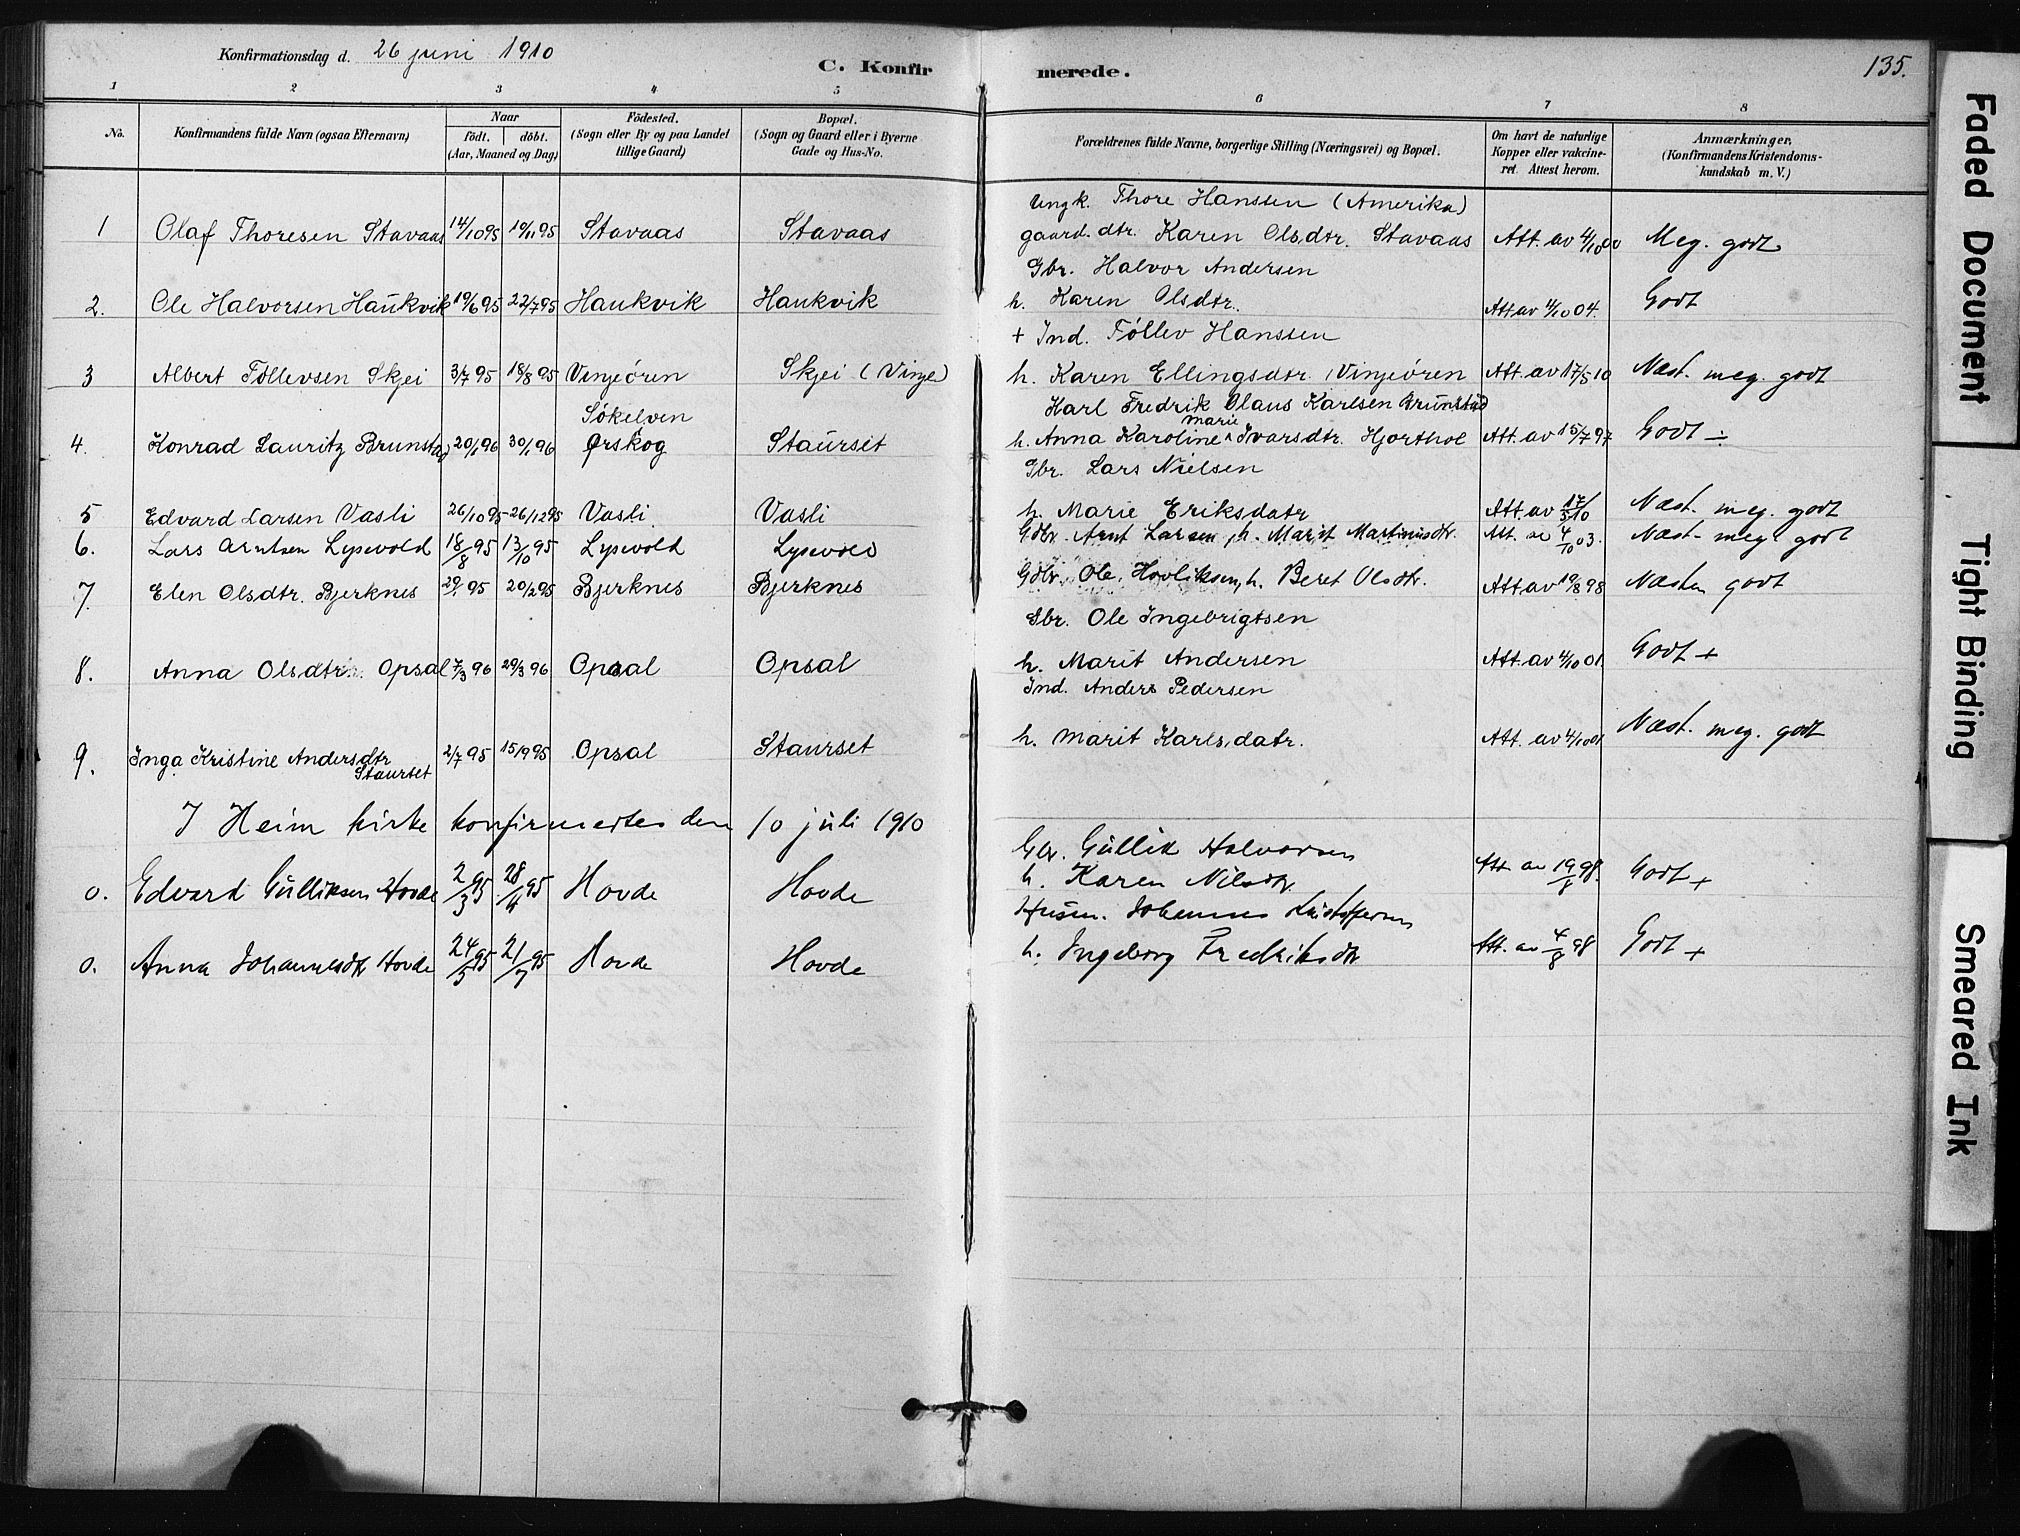 Konfirmationsdag d. 26 juni 1910
C. Konfirmerede.
135.
1 2 3 4 5 6 7 8
No.
Konfirmandens fulde Navn (ogsaa Efternavn)
Naar
födt. döbt.
(Aar, Maaned og Dag)
Födested.
(Sogn eller By og paa Landet
tillige Gaard)
Bopæl.
(Sogn og Gaard eller i Byerne
Gade og Hus-No.
Forældrenes fulde Navne, borgerlige Stilling (Næringsvei) og Bopæl.
Om havt de naturlige
Kopper eller vakcine-
ret. Attest herom.
Anmærkninger,
(Konfirmandens Kristendoms-
kundskab m. V.)
Ungk. Thore Hanssen (Amerika)
1 Olaf Thoresen Stavaas 14/10 95 10/11 95 Stavaas Stavaas gaard. dtr. Karen Olsdtr. Stavaas Att. av 4/10 00 Meg. godt
Gbr. Halvor Andersen
2. Ole Halvorsen Haukvik 19/6 95 22/7 95 Haukvik Haukvik h. Karen Olsdtr. Att av 4/10 04. Godt
+ Ind. Föllev Hanssen
3 Albert Föllevsen Skjei 3/7 95 18/8 95 Vinjeören Skjei (Vinje) h. Karen Ellingsdtr. Vinjeören Att. av 17/5 10 Næst. meg. godt
Sökelven
Karl Fredrik Olaus Karlsen Brunstad
4. Konrad Lauritz Brunstad 20/1 96 30/1 96 Ørskog Staurset h. Anna Karoline Marie Ivarsdtr. Hjorthol Att. av 15/7 97 Godt ÷
Gbr. Lars Nielsen
5 Edvard Larsen Vasli 26/10 95 26/12 95 Vasli Vasli h. Marie Eriksdatr Att. av 17/5 10 Næst. meg. godt
6. Lars Arntsen Lysevold 18/8 95 13/10 95 Lysevold Lysevold Gdbr. Arnt Larsen, h. Marit Martinusdtr. Att. av 4/10 03. Næst. meg. godt
7. Elen Olsdtr. Bjerknes 95 20/2 95 Bjerknes Bjerknes Gdbr. Ole h. Beret Olsdtr. Att av 19/8 98 Næsten godt
Gbr. Ole Ingebrigtsen
8. Anna Olsdtr. Opsal 7/3 96 29/3 96 Opsal Opsal h. Marit Andersen Att. av 4/10 01. Godt +
Ind. Anders Pedersen
9. Inga Kristine Andersdtr Staurset 2/7 95 15/9 95 Opsal Staurset h. Marit Karlsdatr. Att. av 4/10 01 Næst. meg. godt
I Heim kirke konfirmertes den 10 juli 1910
Gbr. Gullik Halvorsen
0. Edvard Gulliksen Hovde 2/3 95 28/4 95 Hovde Hovde h. Karen Nilsdtr. Att av 19/8 98. Godt +
Husm. Johannes Kristoffersen
0. Anna Johannesdtr Hovde 24/5 95 21/7 95 Hovde Hovde h. Ingeborg Fredriksdtr Att. av 4/8 98 Godt +
Faded Document
Tight Binding
Smeared Ink